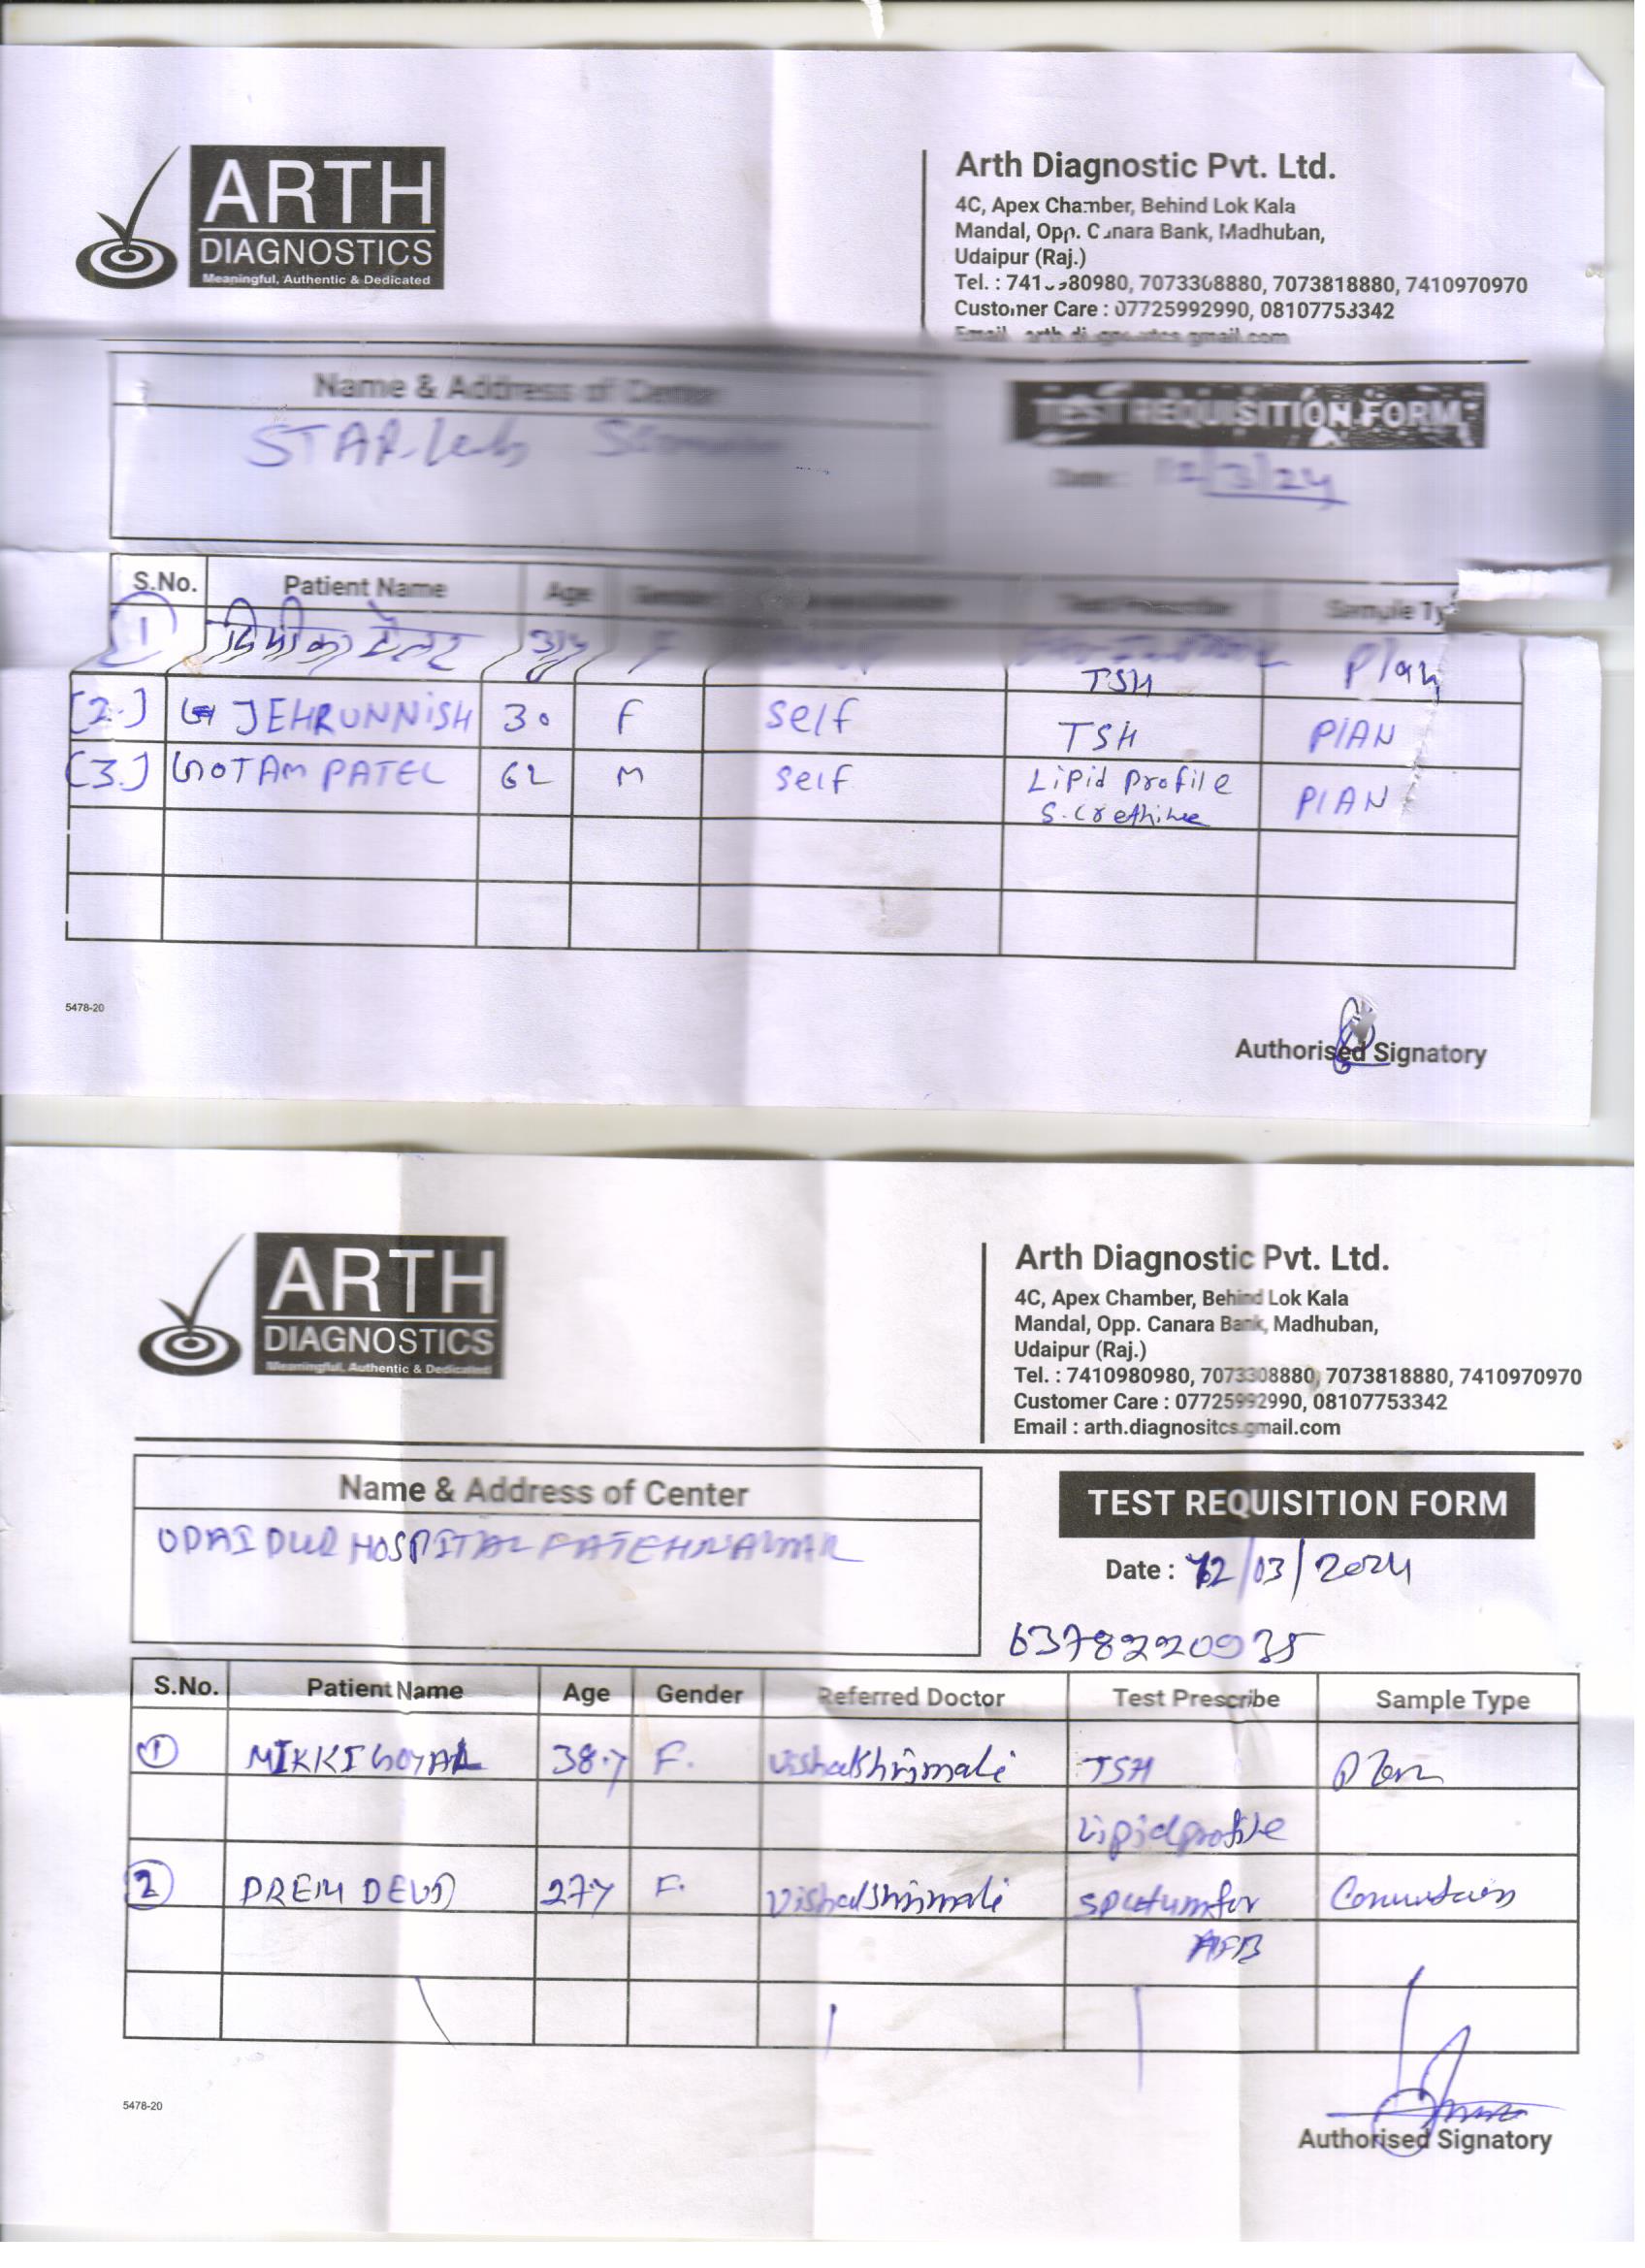 ARTH
DIAGNOSTICS
Meaningful, Authentic & Dedicated
Arth Diagnostic Pvt. Ltd.
4C, Apex Chamber, Behind Lok Kala
Mandal, Opp. Canara Bank, Madhuban,
Udaipur (Raj.)
Tel. : 7073308880, 7073818880, 7410970970
Customer Care : 07725992990, 08107753342
Name & Address of Center
TEST REQUISITION FORM
STAR Lab
Date : 12/3/24
S.No. Patient Name Age Gender Test Prescribe Sample Ty
1 F TSH Plan
(2.) JEHRUNNISH 30 F Self TSH PlAN
(3.) GOTAM PATEL 62 M Self Lipid Profile PlAN
5478-20
Authorised Signatory
ARTH
DIAGNOSTICS
Meaningful, Authentic & Dedicated
Arth Diagnostic Pvt. Ltd.
4C, Apex Chamber, Behind Lok Kala
Mandal, Opp. Canara Bank, Madhuban,
Udaipur (Raj.)
Tel. : 7410980980, 7073308880, 7073818880, 7410970970
Customer Care : 07725992990, 08107753342
Email : arth.diagnositcs.gmail.com
Name & Address of Center
TEST REQUISITION FORM
HOSPITAL
Date : 12/03/2024
S.No. Patient Name Age Gender Referred Doctor Test Prescribe Sample Type
1 MIKKI GOYAL 38.y F. TSH
Lipid profile
2 PREM DEVI 27y F. sputum for
AFB
5478-20
Authorised Signatory